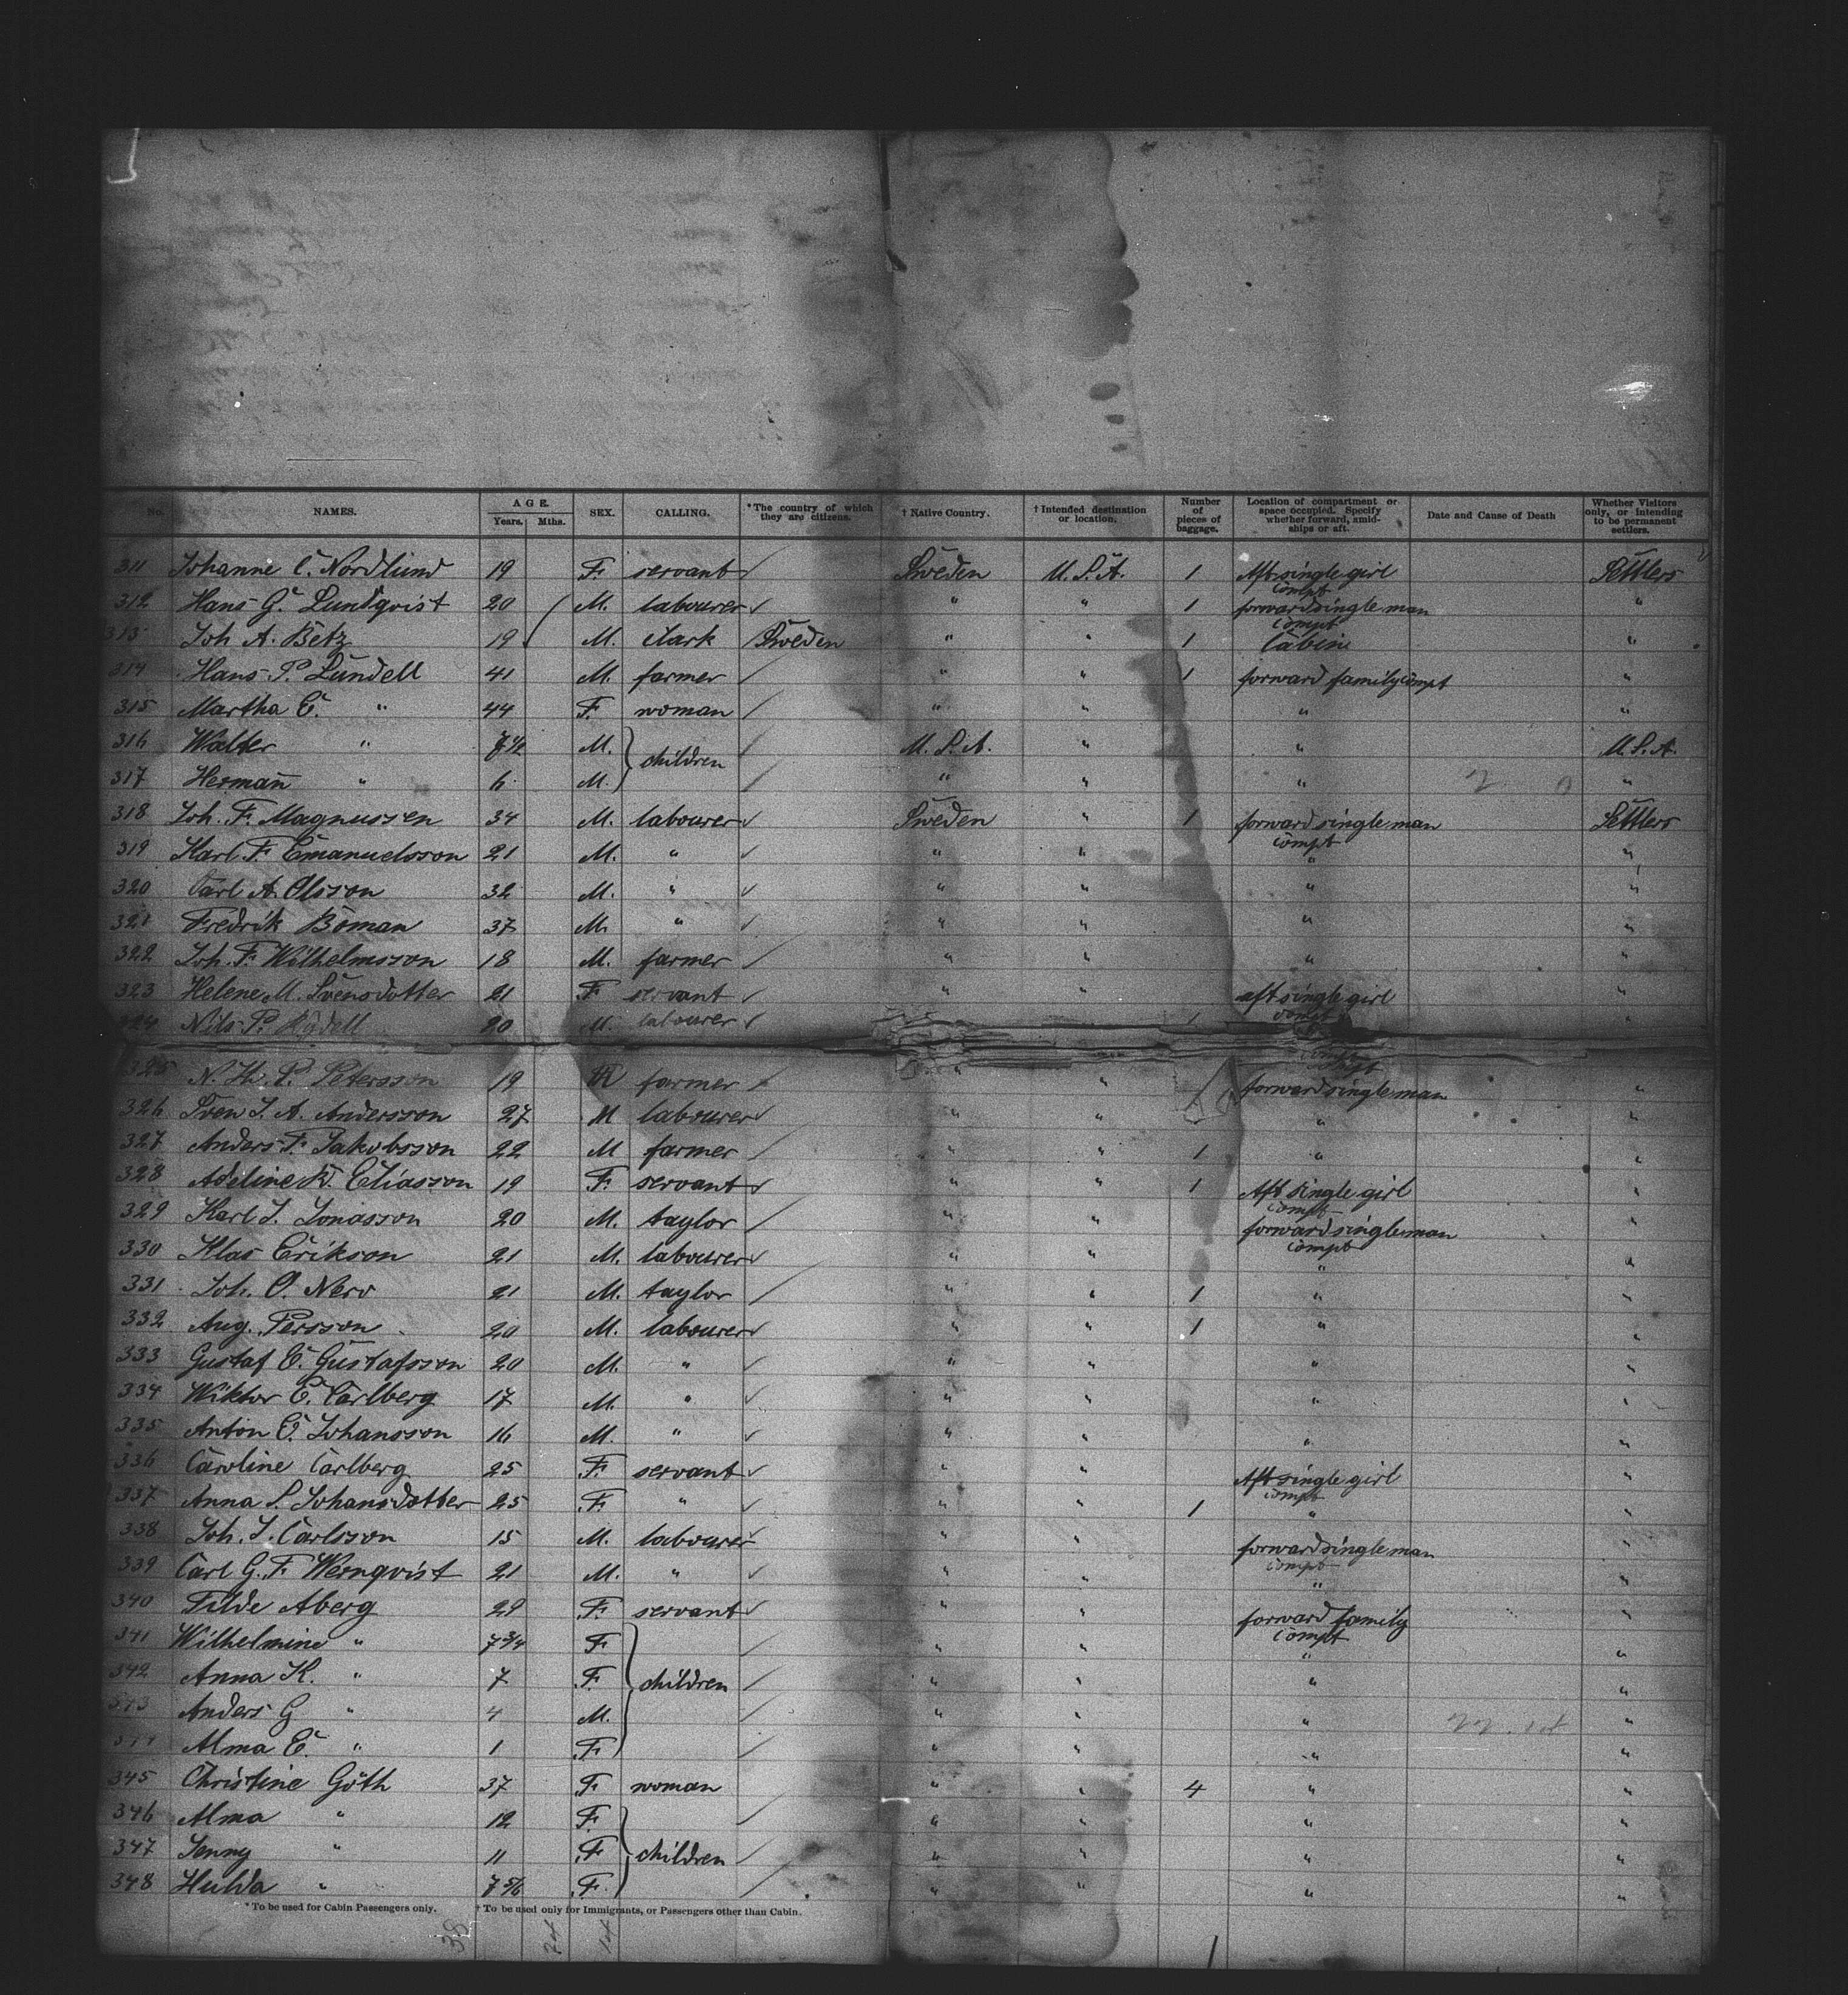 No. NAMES. AGE. Years. Mths. SEX. CALLING. *The country of which they are citizens. † Native Country. † Intended destination or location. Number of pieces of baggage. Location of compartment or space occupied. Specify whether forward, amidships or aft. Date and Cause of Death Whether Visitors only, or intending to be permanent settlers.
311 Johanne C. Nordlund 19 F. servant Sweden U.S.A. 1 Aft single girl compt Settlers
312 Hans G. Lundqvist 20 M. labourer " " 1 forward single man compt "
313 Joh A. Betz 19 M. clark Sweden " " 1 Cabine "
314 Hans P. Lundell 41 M. farmer " " 1 forward family compt "
315 Martha E. " 44 F. woman " " " "
316 Walter " 7 M. children U.S.A. " " U.S.A.
317 Hermann " 6 M. " " " "
318 Joh. F. Magnussen 34 M. labourer Sweden " 1 forward single man compt Settlers
319 Karl F. Emanuelsson 21 M. " " " " "
320 Carl A. Olsson 32 M. " " " " "
321 Fredrik Boman 37 M. " " " " "
322 Joh. F. Wilhelmsson 18 M. farmer " " " "
323 Helene M. Svensdotter 21 F servant " " aft single girl compt "
324 Nils P. 20 M. labourer 1 "
325 N. P. Petersson 19 M farmer " " forward single man "
326 Sven J. A. Andersson 27 M labourer " " " "
327 Anders F. Jakobsson 22 M farmer " " 1 " "
328 Adeline K. Eliasson 19 F. servant " " 1 Aft single girl compt "
329 Karl J. Jonasson 20 M. taylor " " forward single man compt "
330 Klas Erikson 21 M. labourer " " " "
331 Joh. O. Nero 21 M. taylor " " 1 " "
332 Aug. Persson 20 M. labourer " " 1 " "
333 Gustaf E. Gustafsson 20 M. " " " " "
334 Wiktor E. Carlberg 17 M. " " " " "
335 Anton E. Johansson 16 M. " " " " "
336 Caroline Carlberg 25 F. servant " " Aft single girl compt "
337 Anna S. Johansdotter 25 F. " " " 1 " "
338 Joh. J. Carlsson 15 M. labourer " " forward single man compt "
339 Carl G. F. Wernqvist 21 M. " " " " "
340 Tilde Aberg 29 F. servant " " forward family compt "
341 Wilhelmine " 7 3/4 F. children " " " "
342 Anna K. " 7 F. " " " "
343 Anders G " 4 M. " " " "
344 Alma E. " 1 F. " " " "
345 Christine Göth 37 F. woman " " 4 " "
346 Alma " 12 F. children " " " "
347 Jenny " 11 F. " " " "
348 Hulda " 7 5/6 F. " " " "
* To be used for Cabin Passengers only. † To be used only for Immigrants, or Passengers other than Cabin.
38 24 14